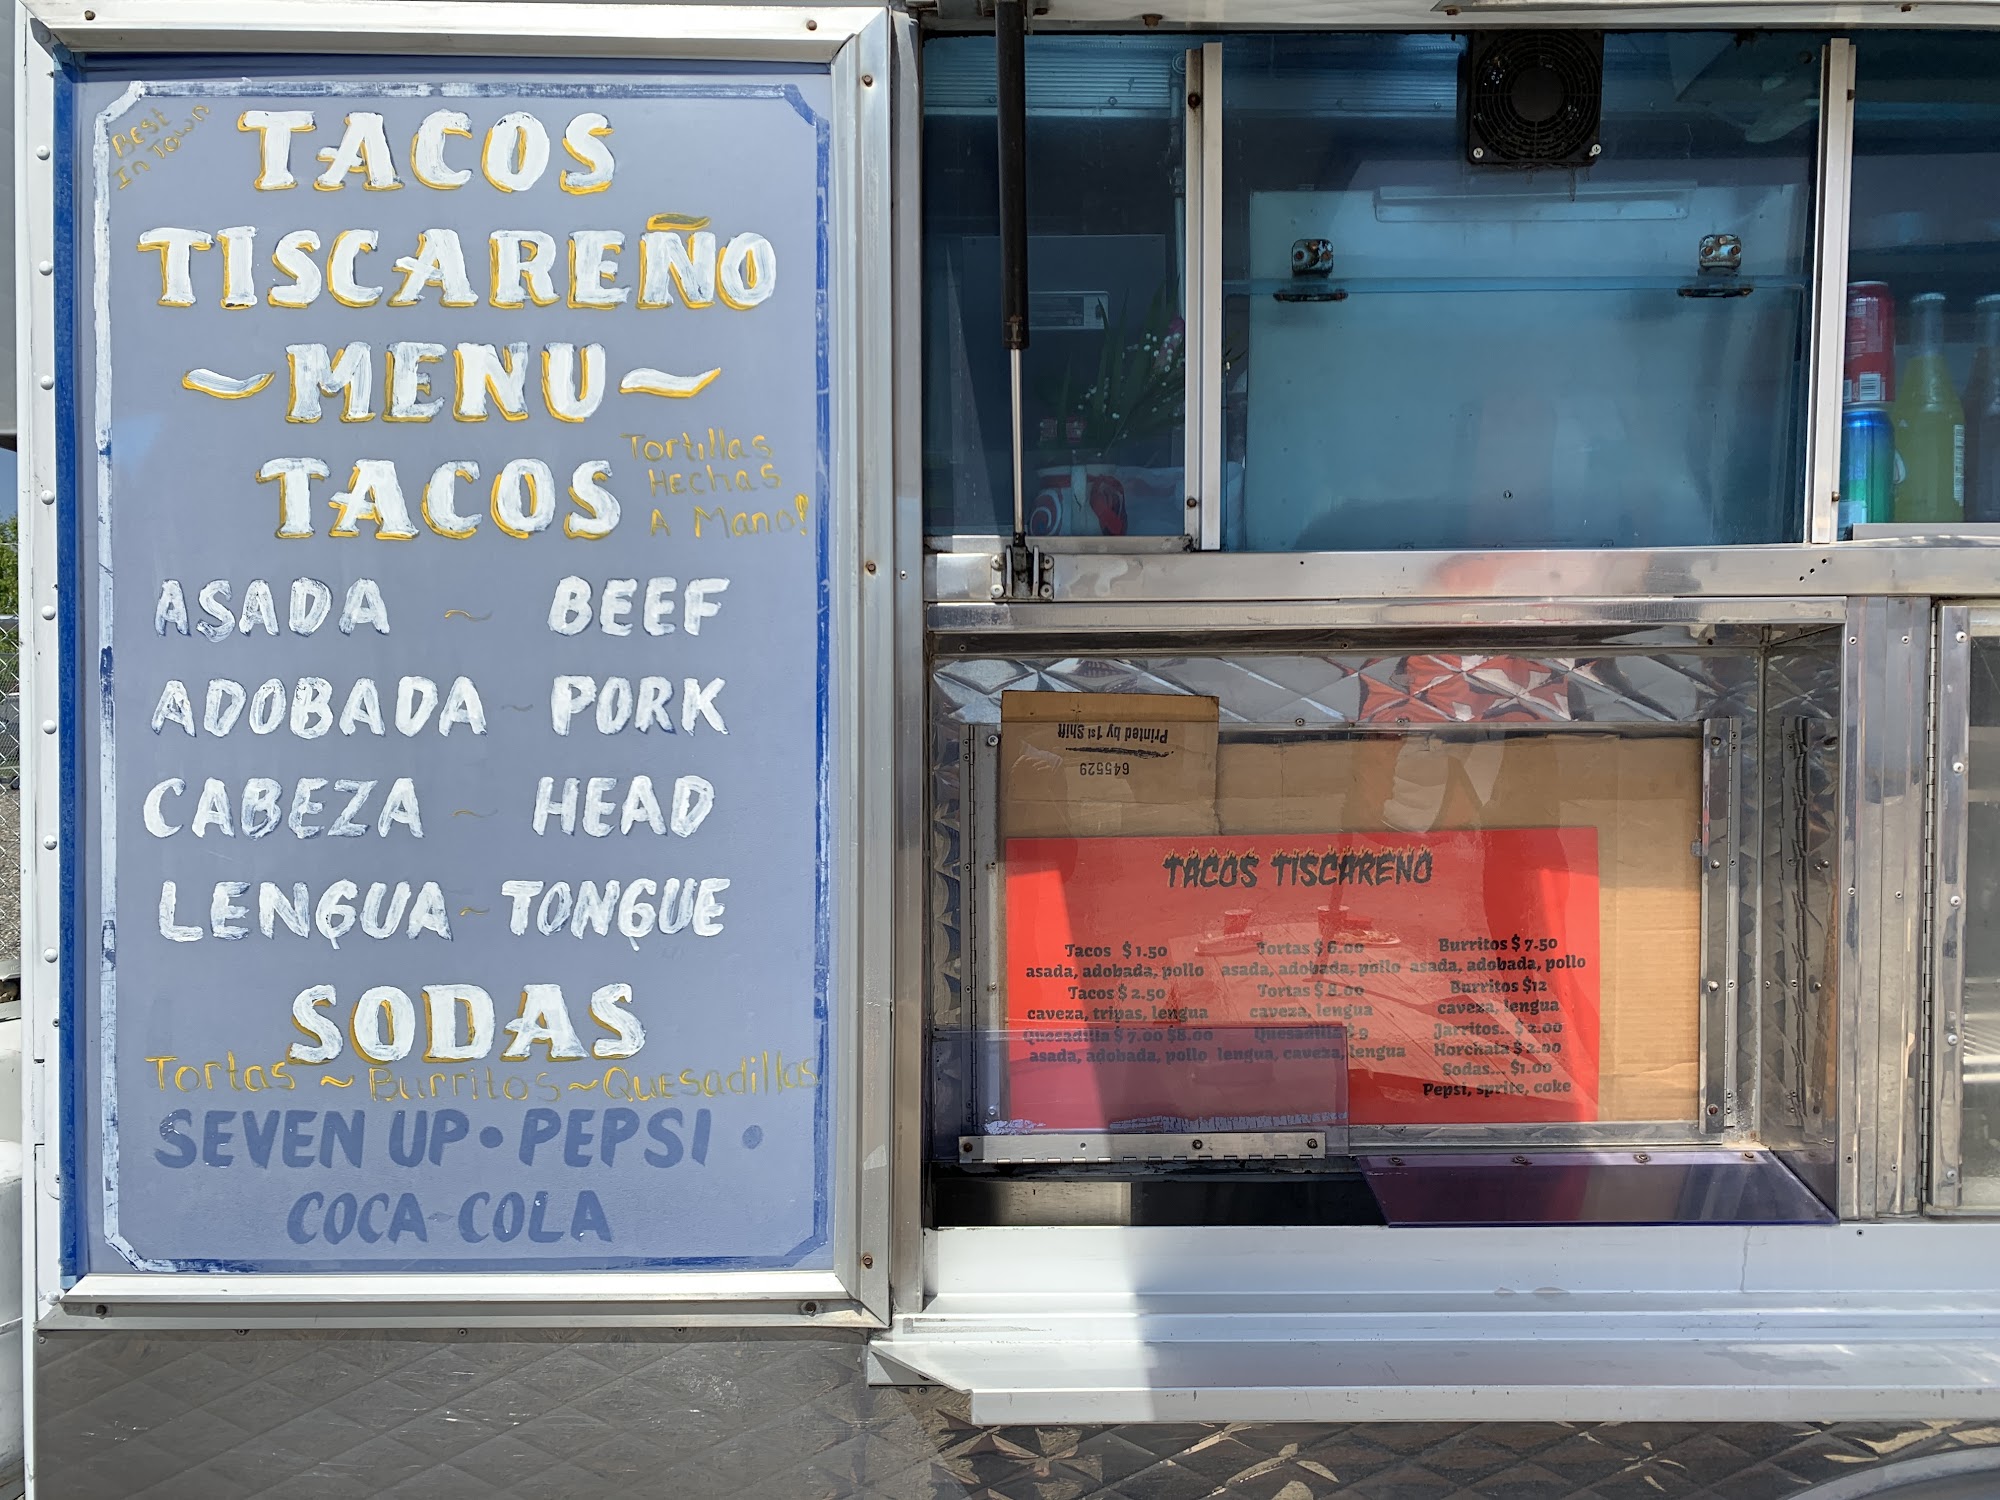 Best
In Town
TACOS
TISCAREÑO
~MENU~
TACOS
Tortillas
Hechas
A Mano!
ASADA ~ BEEF
ADOBADA ~ PORK
CABEZA ~ HEAD
LENGUA ~ TONGUE
SODAS
Tortas ~ Burritos ~ Quesadillas
SEVEN UP • PEPSI •
COCA-COLA
Printed by 1st Shift
645529
TACOS TISCARENO
Tacos $1.50
asada, adobada, pollo
Tacos $2.50
caveza, tripas, lengua
Quesadilla $7.00 $8.00
asada, adobada, pollo
Tortas $6.00
asada, adobada, pollo
Tortas $8.00
caveza, lengua
Quesadilla $9
lengua, caveza, lengua
Burritos $7.50
asada, adobada, pollo
Burritos $12
caveza, lengua
Jarritos.. $2.00
Horchata $2.00
Sodas... $1.00
Pepsi, sprite, coke